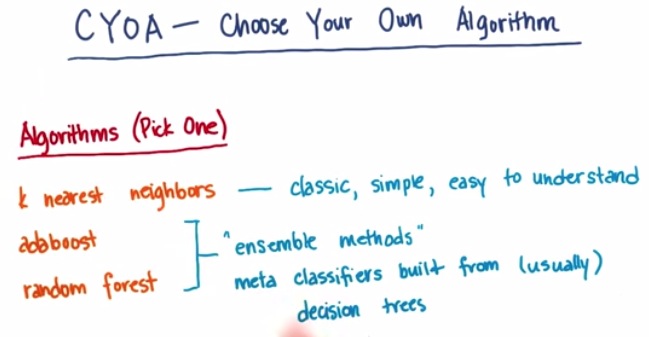 CYOA — Choose Your Own Algorithm
Algorithms (Pick One)
k nearest neighbors — classic, simple, easy to understand
adaboost
"ensemble methods"
random forest
meta classifiers built from (usually)
decision trees